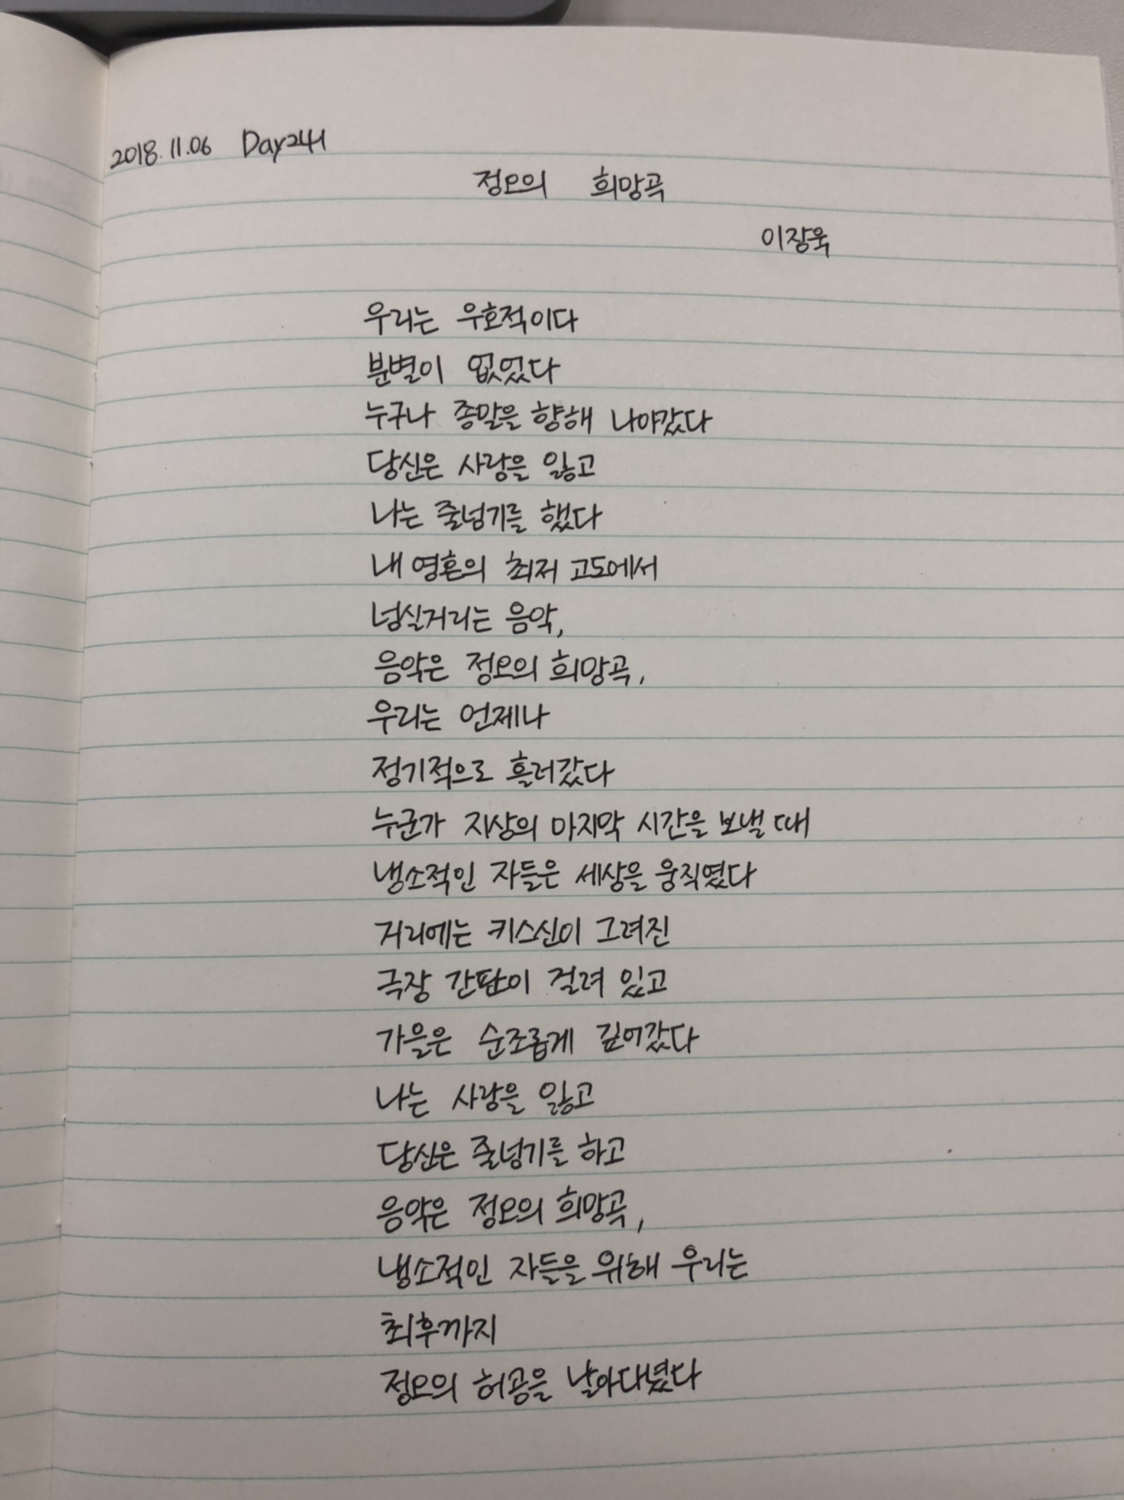 2018.11.06 Day241
정오의 희망곡
이장욱
우리는 우호적이다
분별이 없었다
누구나 종말을 향해 나아갔다
당신은 사랑을 잃고
나는 줄넘기를 했다
내 영혼의 최저 고도에서
넘실거리는 음악,
음악은 정오의 희망곡,
우리는 언제나
정기적으로 흘러갔다
누군가 지상의 마지막 시간을 보낼 때
냉소적인 자들은 세상을 움직였다
거리에는 키스신이 그려진
극장 간판이 걸려 있고
가을은 순조롭게 깊어갔다
나는 사랑을 잃고
당신은 줄넘기를 하고
음악은 정오의 희망곡,
냉소적인 자들을 위해 우리는
최후까지
정오의 허공을 날아다녔다